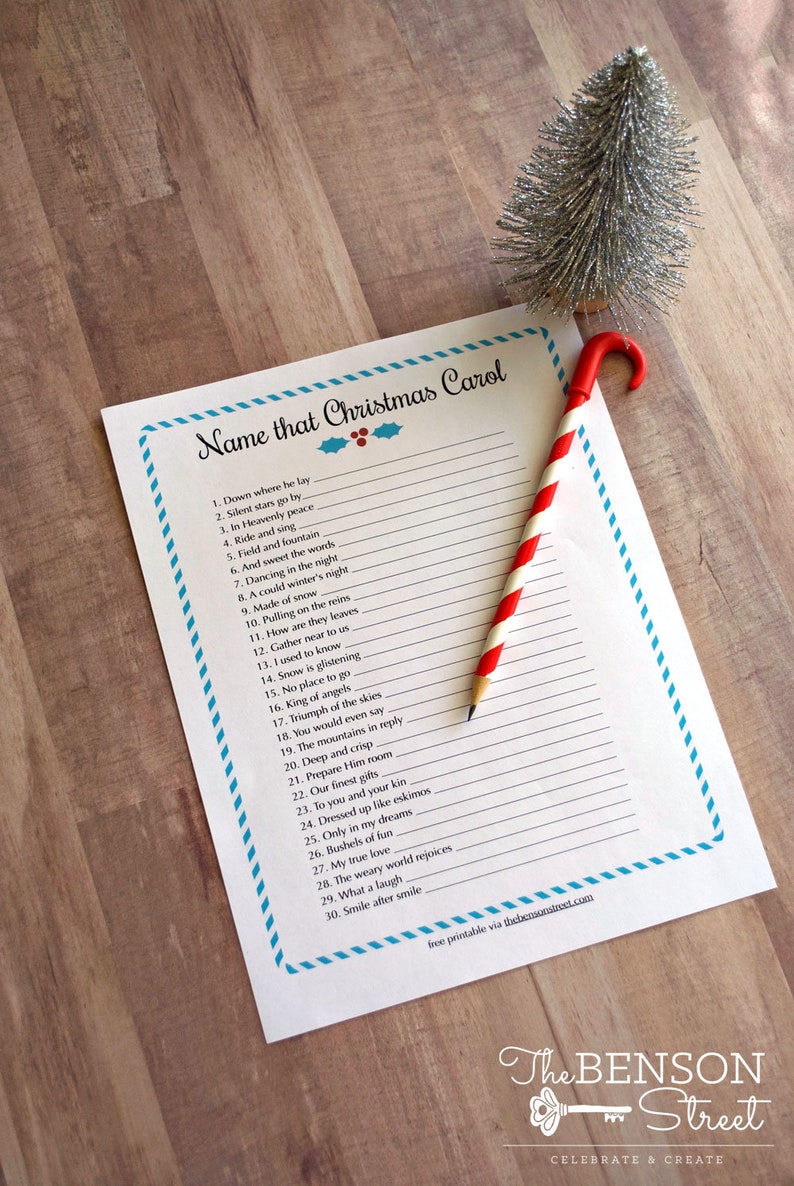 Name that Christmas Carol
1. Down where he lay
2. Silent stars go by
3. In Heavenly peace
4. Ride and sing
5. Field and fountain
6. And sweet the words
7. Dancing in the night
8. A could winter's night
9. Made of snow
10. Pulling on the reins
11. How are they leaves
12. Gather near to us
13. I used to know
14. Snow is glistening
15. No place to go
16. King of angels
17. Triumph of the skies
18. You would even say
19. The mountains in reply
20. Deep and crisp
21. Prepare Him room
22. Our finest gifts
23. To you and your kin
24. Dressed up like eskimos
25. Only in my dreams
26. Bushels of fun
27. My true love
28. The weary world rejoices
29. What a laugh
30. Smile after smile
free printable via thebensonstreet.com
The BENSON
Street
CELEBRATE & CREATE